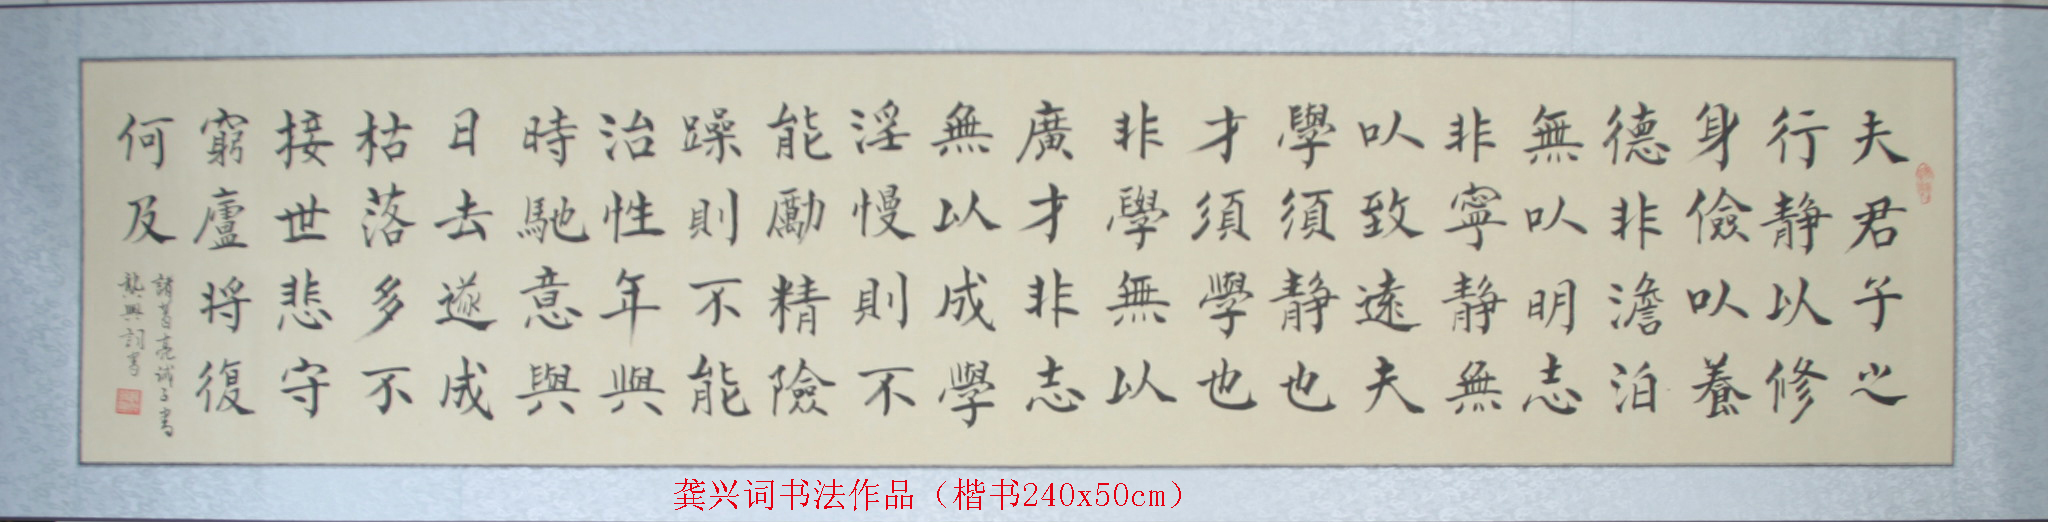 夫君子之
行静以修
身儉以養
德非澹泊
無以明志
非寧静無
以致遠夫
學須静也
才須學也
非學無以
廣才非志
無以成學
淫慢則不
能勵精險
躁則不能
治性年與
時馳意與
日去遂成
枯落多不
接世悲守
窮廬將復
何及
諸葛亮誡子書
龔興詞書
龚兴词书法作品（楷书240x50cm）